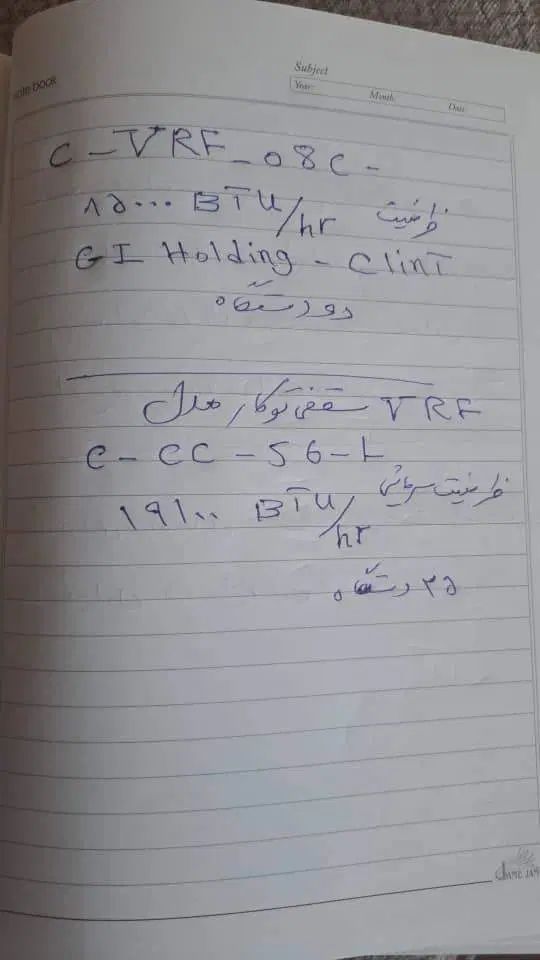 note book
Subject
Year: Month: Date:
C - VRF - 08C -
ظرفیت ۸۵۰۰۰ BTU/hr
GI Holding - Clint
دو دستگاه
VRF سقفی توکار مدل
C - CC - 56 - L
ظرفیت سرمائی ۱۹۱۰۰ BTU/hr
۲۵ دستگاه
JAME JAM